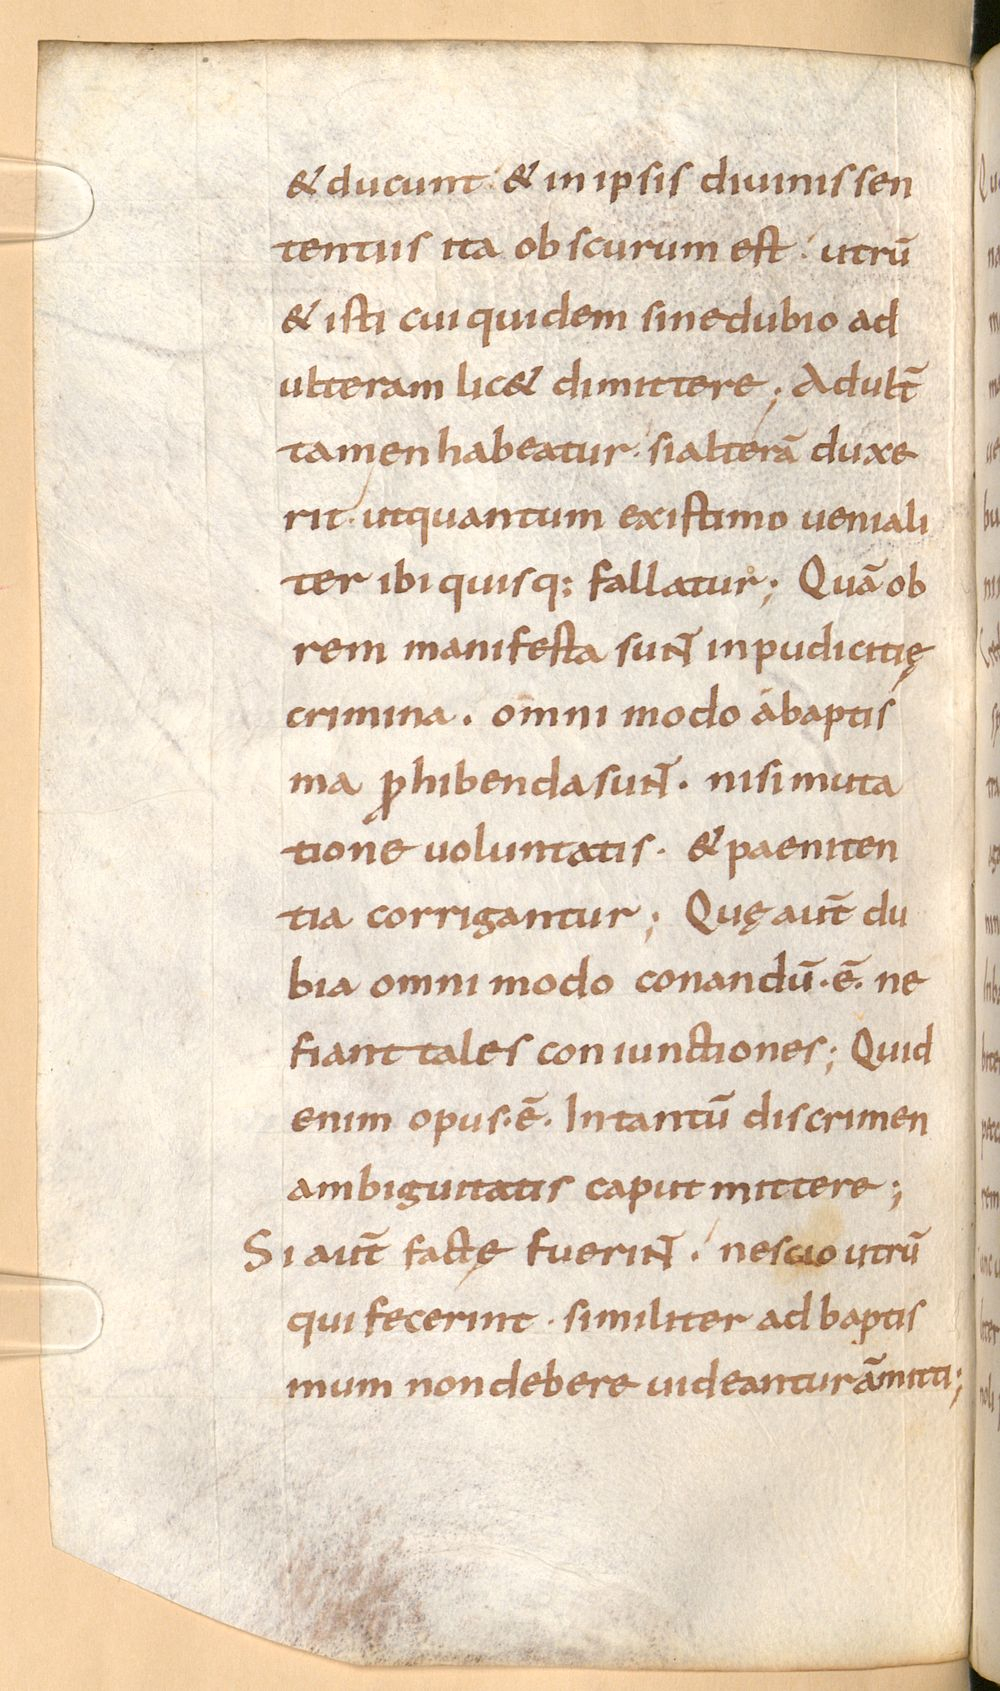 & ducunt· & in ipsis diuinis sen
tentiis ita obscurum est· utrū
& isti cui quidem sine dubio ad
ulteram lic& dimittere; Adult̄
tamen habeatur· si alterā duxe
rit· ut quantum existimo ueniali
ter ibi quisq: fallatur; Quā ob
rem manifesta sunt inpudicitię
crimina· omni modo a baptis
ma ꝓhibenda sunt· nisi muta
tione uoluntatis· & paeniten
tia corrigantur; Quę aut̄ du
bia omni modo conandū·ē· ne
fiant tales coniunctiones; Quid
enim opus·ē· In tantū discrimen
ambiguitatis caput mittere;
Si aut̄ factę fuerint· nescio utrū
qui fecerint· similiter ad baptis
mum non debere uideantur āmitti;